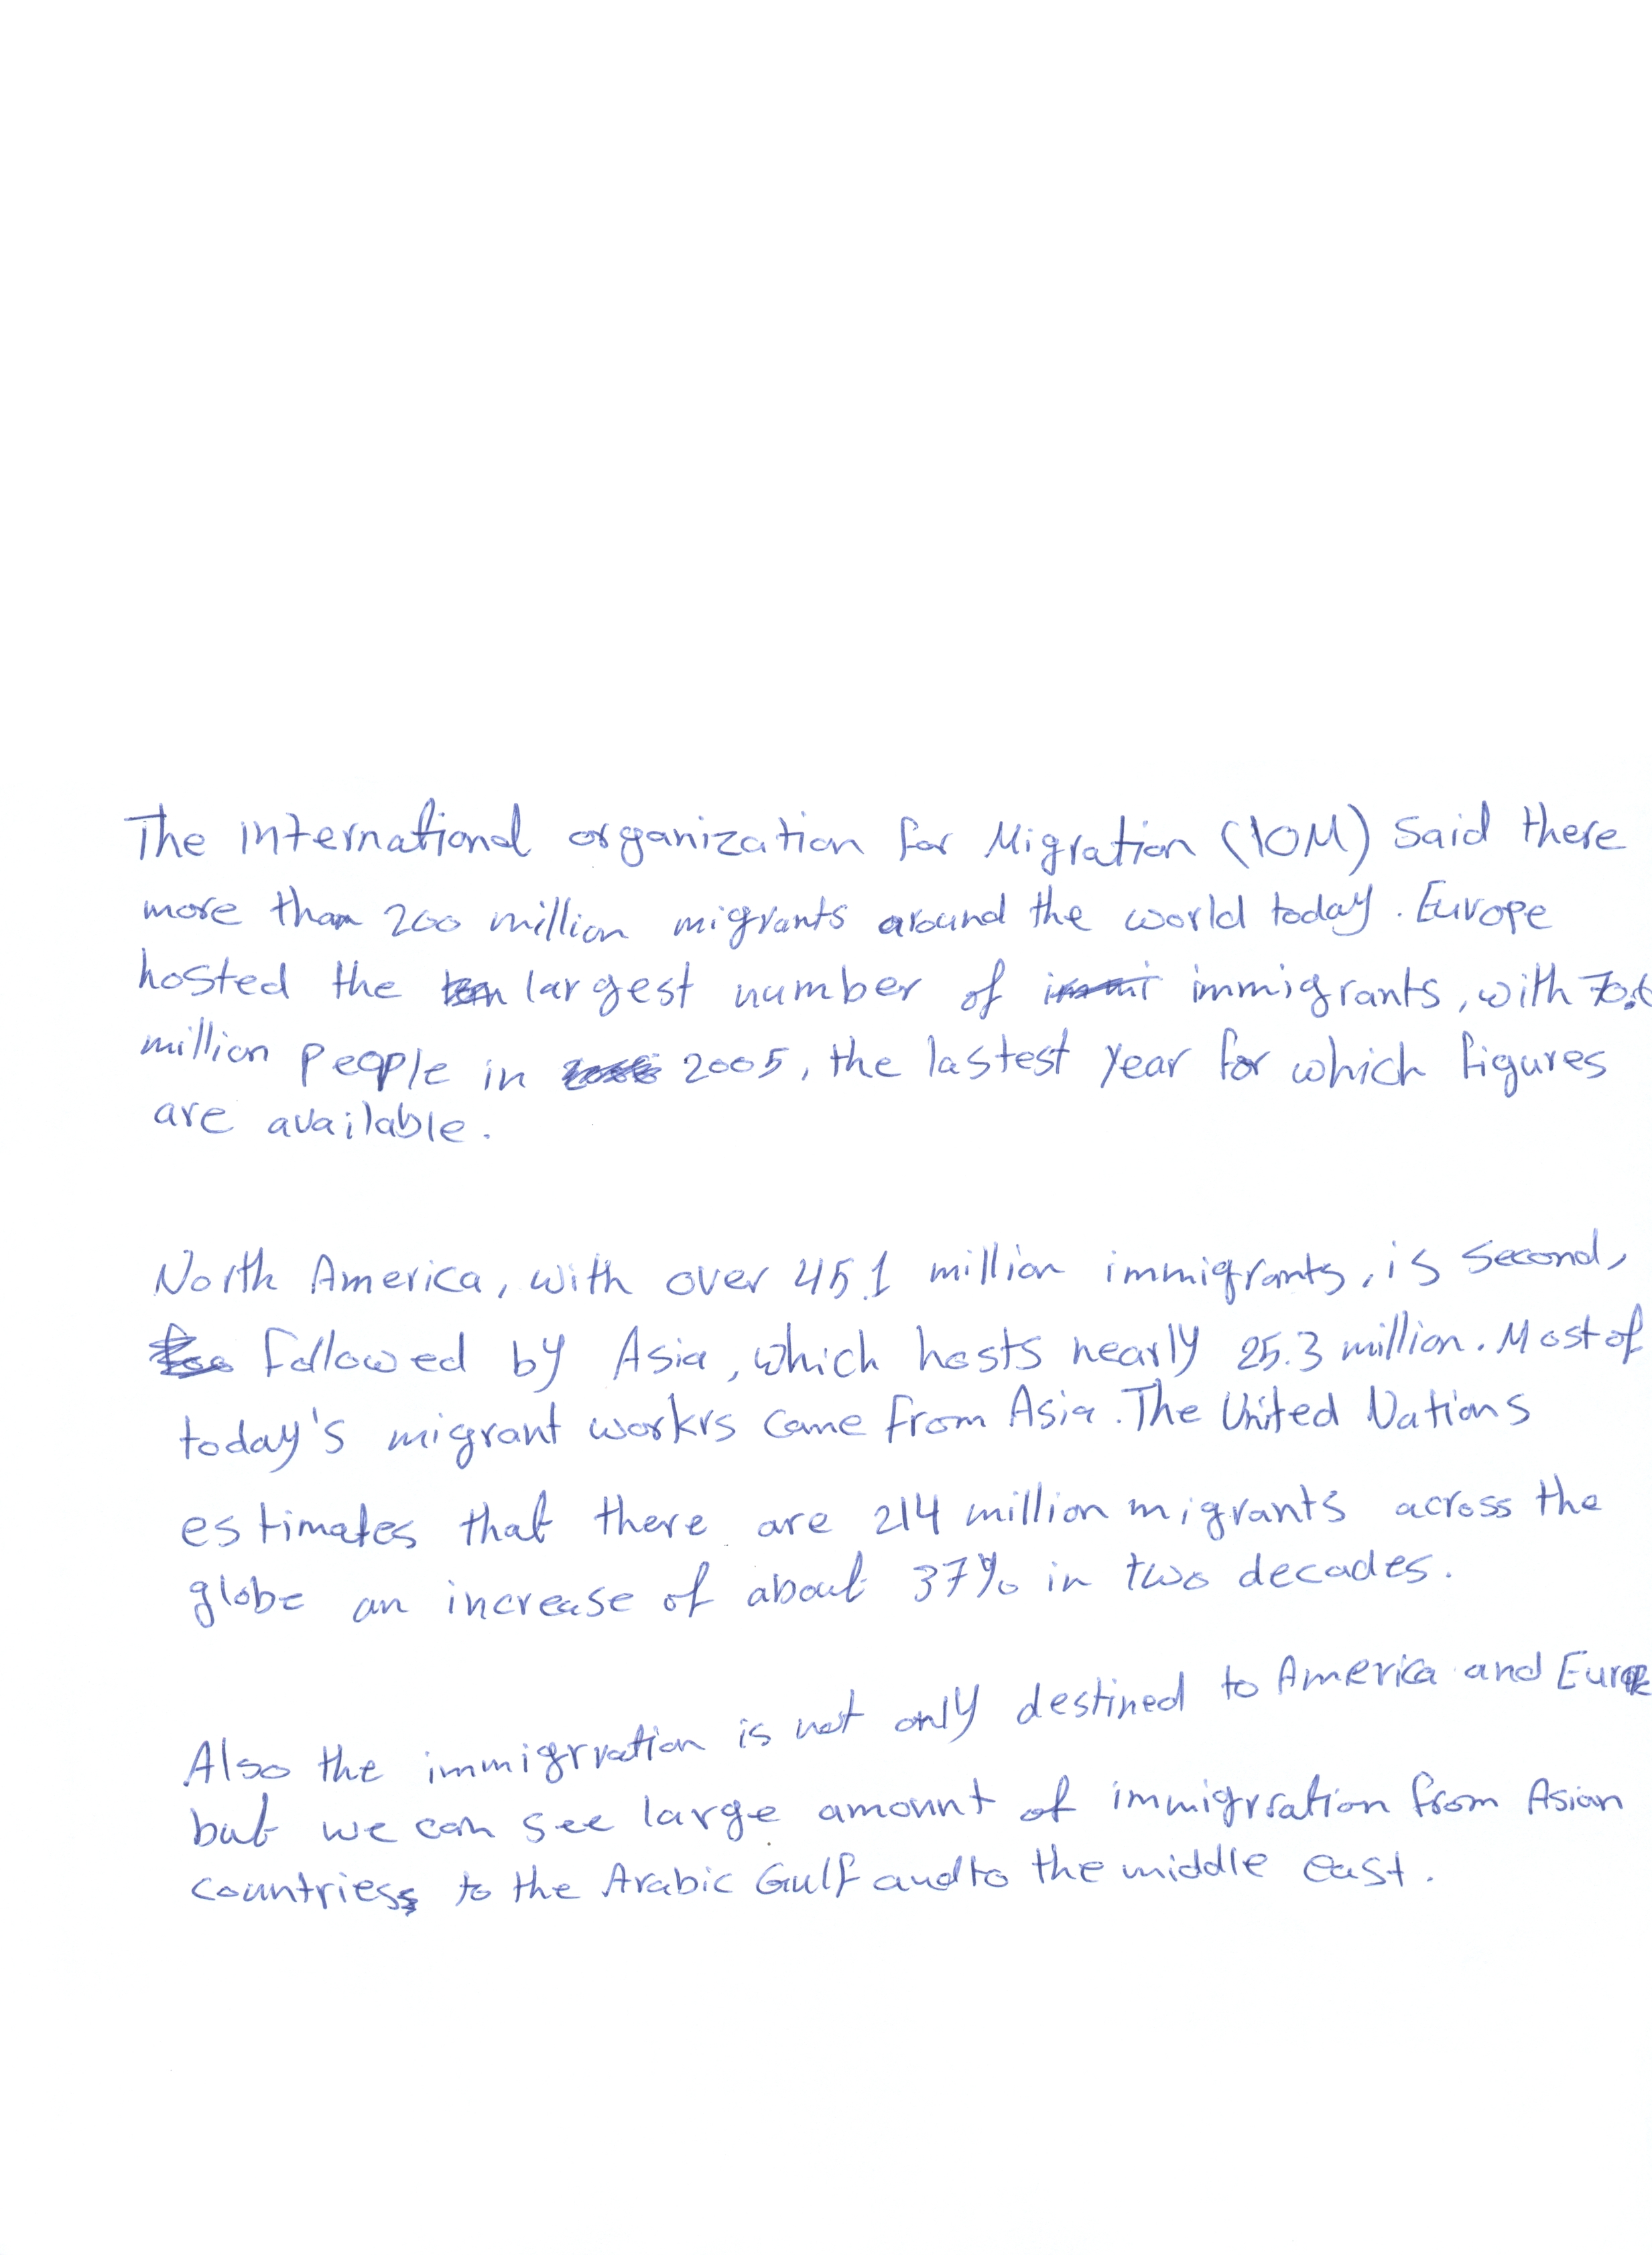 The International organization for Migration (IOM) said there
more than 200 million migrants around the world today. Europe
hosted the largest number of immigrants, with 70.6
million people in 2005, the lastest year for which figures
are available.
North America, with over 45.1 million immigrants, is second,
followed by Asia, which hosts nearly 25.3 million. Most of
today's migrant workrs come from Asia. The United Nations
estimates that there are 214 million migrants across the
globe an increase of about 37% in two decades.
Also the immigrration is not only destined to America and Europe
but we can see large amount of immigrration from Asian
countries to the Arabic Gulf and to the middle east.